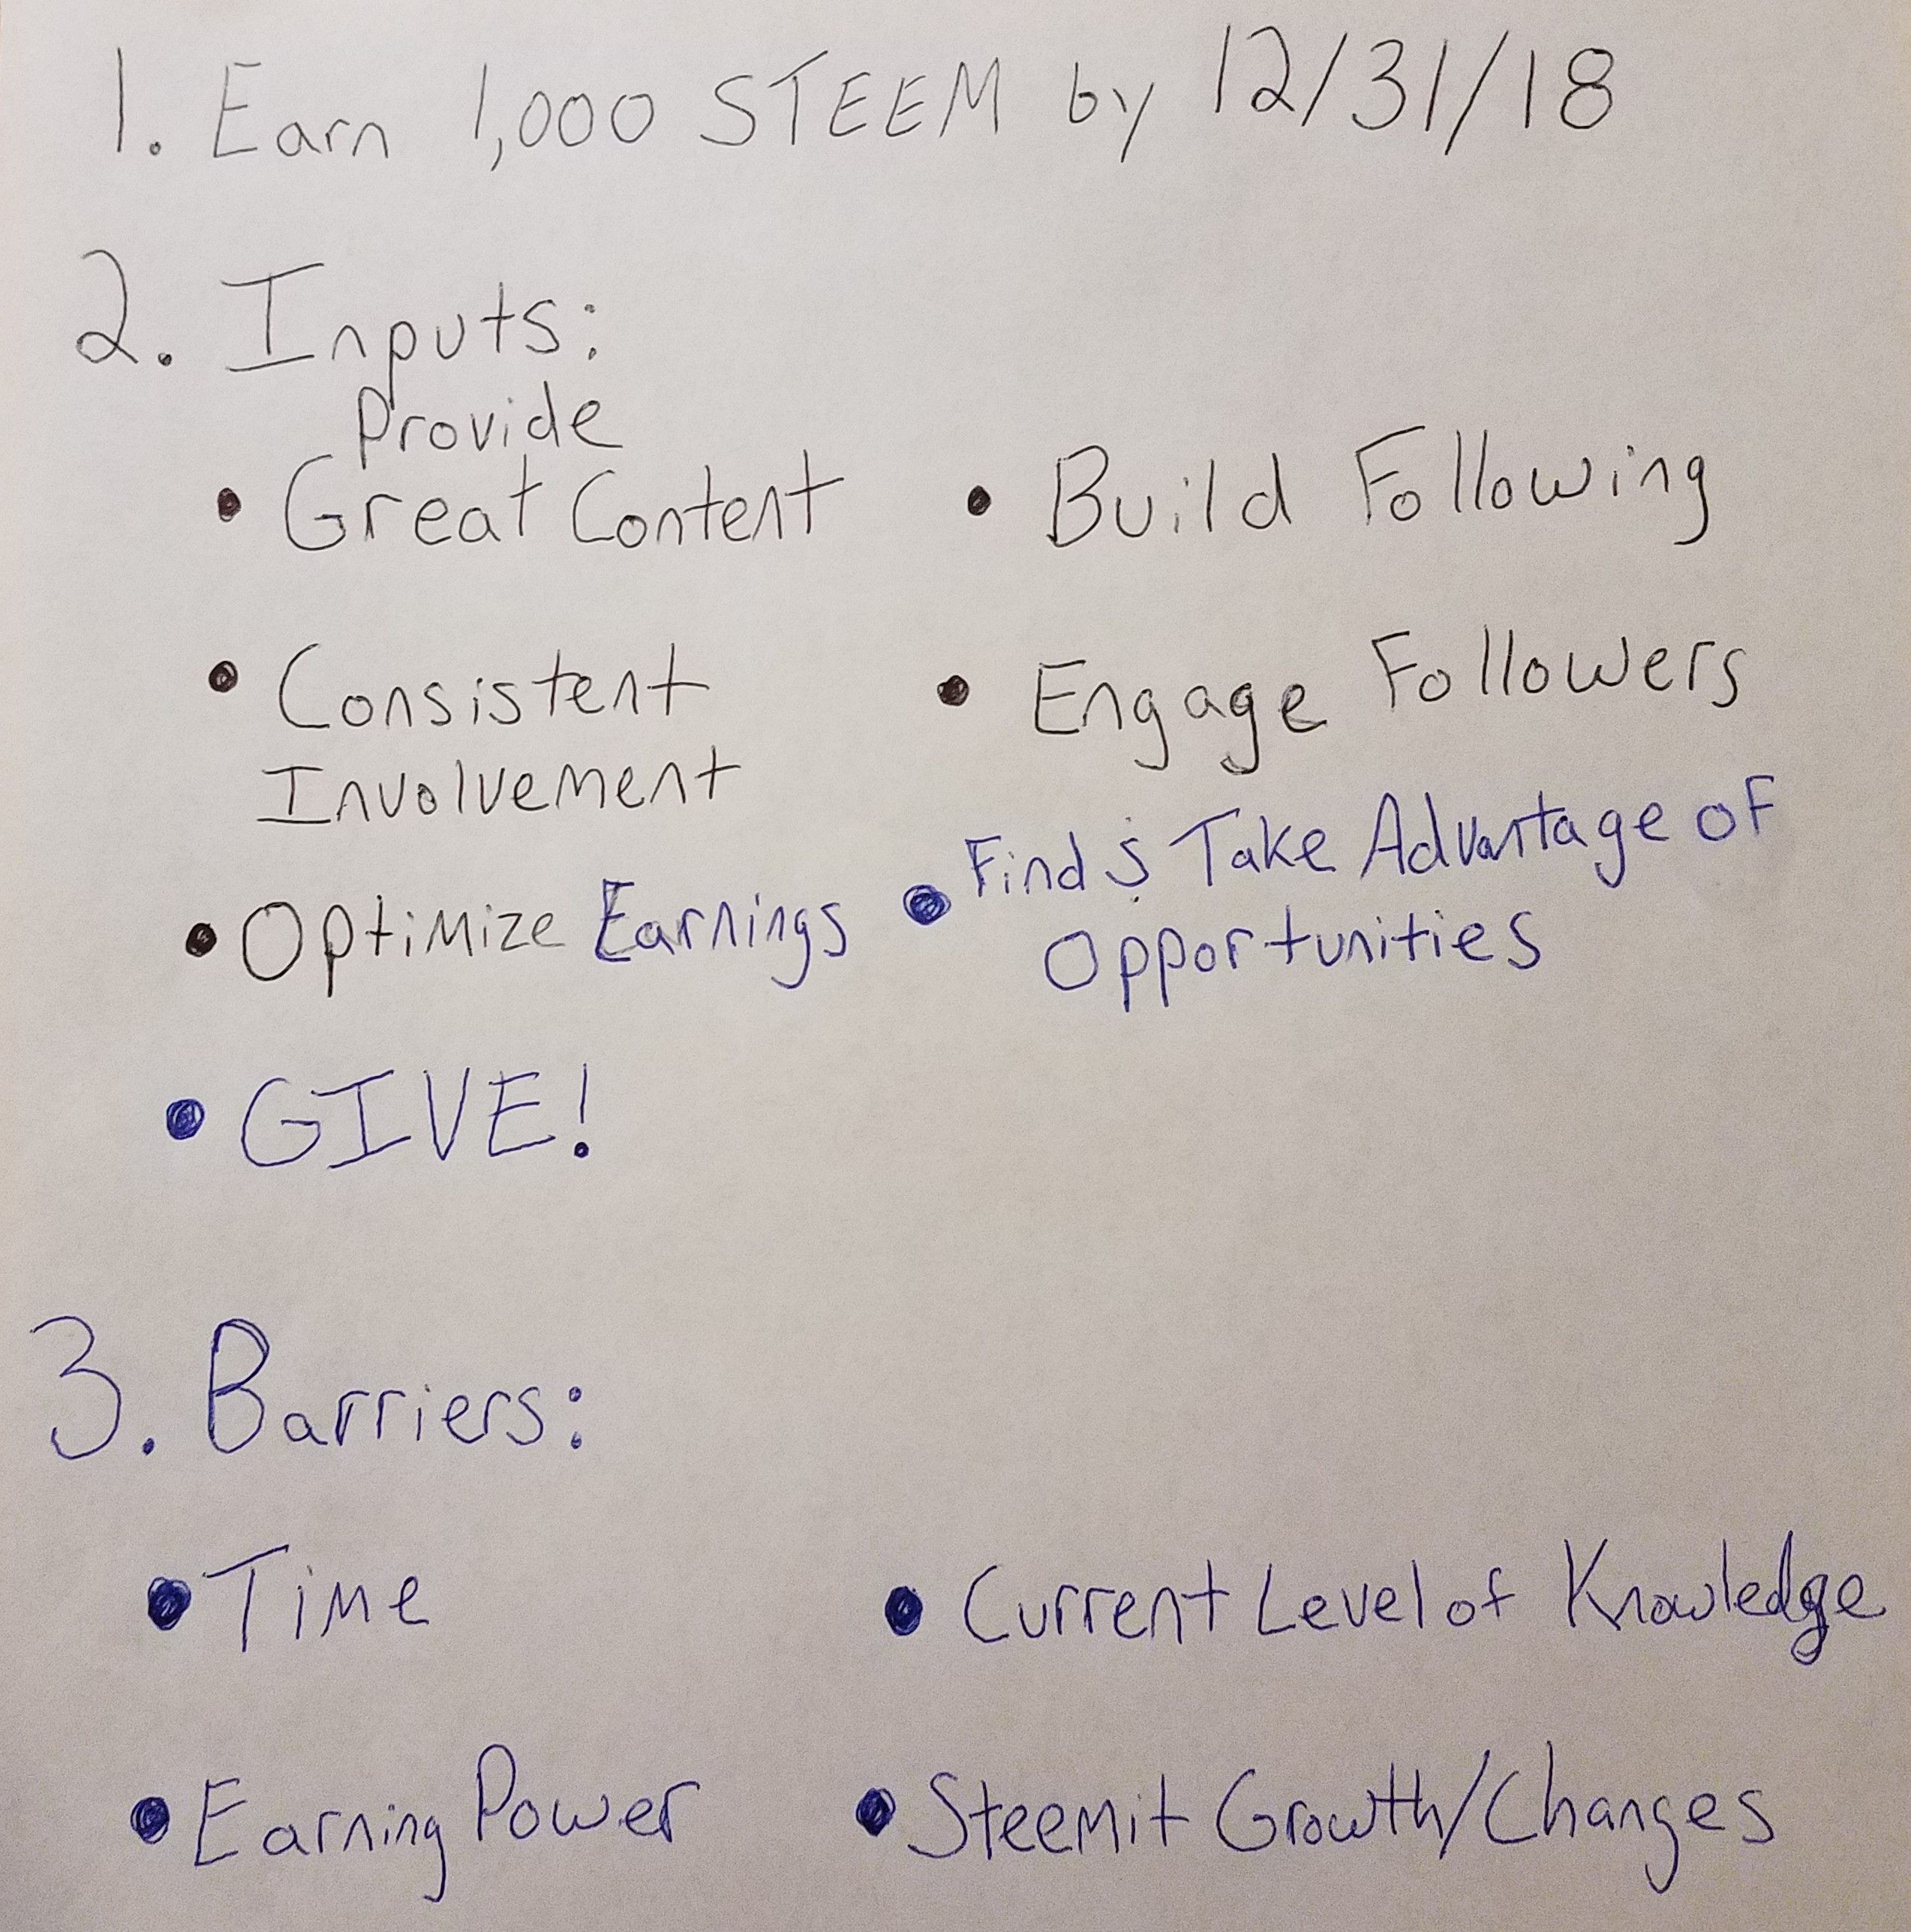 1. Earn 1,000 STEEM by 12/31/18
2. Inputs:
Provide
• Great Content
• Build Following
• Consistent
Involvement
• Engage Followers
• Optimize Earnings
• Find & Take Advantage of
Opportunities
• GIVE!
3. Barriers:
• Time
• Current Level of Knowledge
• Earning Power
• Steemit Growth/Changes